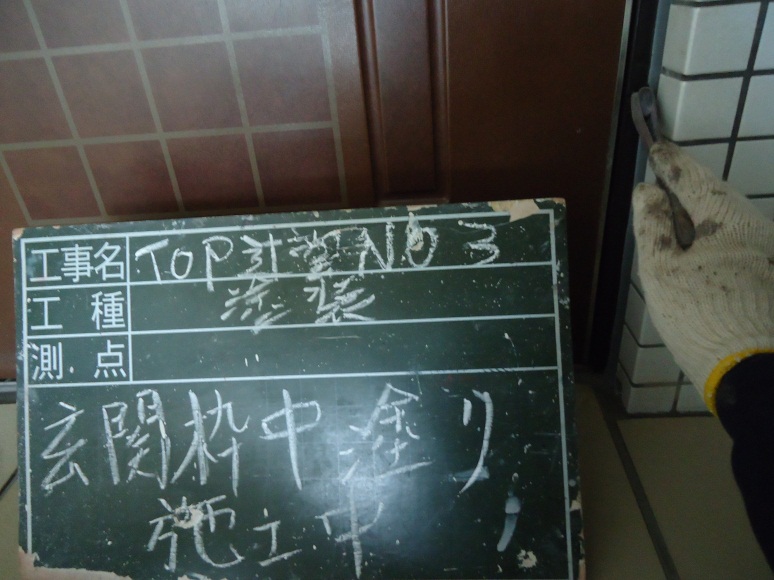 工事名 TOP計画NO3
工種 塗装
測点
玄関枠中塗り
施工中